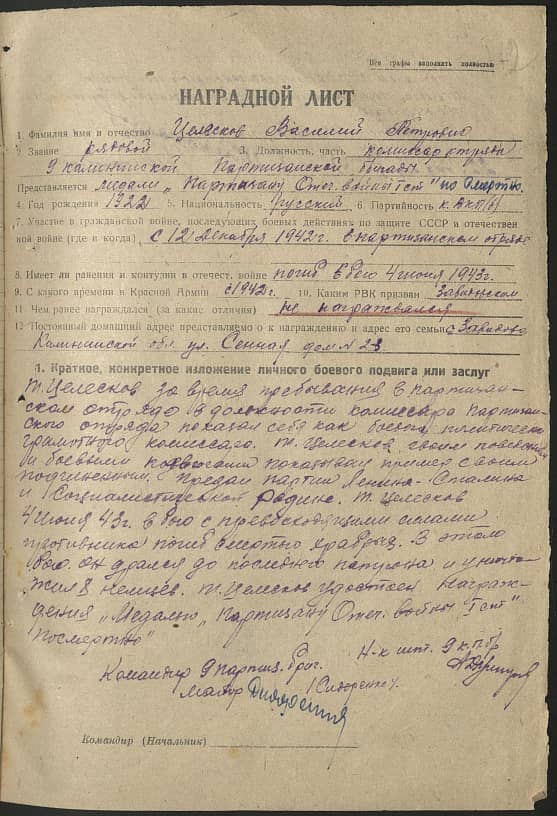 Все графы заполнять полностью
НАГРАДНОЙ ЛИСТ
1. Фамилия имя и отчество Целесков Василий Петрович
2. Звание рядовой 3. Должность, часть комиссар отряда
9 калининской Партизанской бригады
Представляется медали „Партизану Отеч. войны I ст" по смертно.
4. Год рождения 1922 5. Национальность русский 6. Партийность к. ВКП(б)
7. Участие в гражданской войне, последующих боевых действиях по защите СССР и отечествен
ной войне (где и когда) с 12 декабря 1942 г. в партизанском отряде
8. Имеет ли ранения и контузии в отечест. войне погиб в бою 4 июня 1943 г.
9. С какого времени в Красной Армии с 1942 г. 10. Каким РВК призван
11. Чем ранее награждался (за какие отличия) не награждался
12. Постоянный домашний адрес представляемо о к награждению и адрес его семьи
Калининской обл. ул. Сенная дом № 23
1. Краткое, конкретное изложение личного боевого подвига или заслуг
Т. Целесков за время пребывания в партизан-
ском отряде в должности комиссара Партизан-
ского отряда показал себя как боевой, политически
грамотного комиссара. Т. Целесков своим
и боевыми подвигами показывал пример своим
подчиненным. Предан партии Ленина - Сталина
и Социалистической Родине. Т. Целесков
4 июня 43 г. в бою с превосходящими силами
противника погиб смертью храбрых. В этом
бою он дрался до последнего патрона и уничто-
жил 8 немцев. Т. Целесков удостоен награж-
дения „Медалью „Партизану Отеч. войны I ст"
"Посмертно"
Командир 9 партиз. бриг. Н-к шт. 9 к.п.бр
Майор (Сидоренко).
Командир (Начальник)